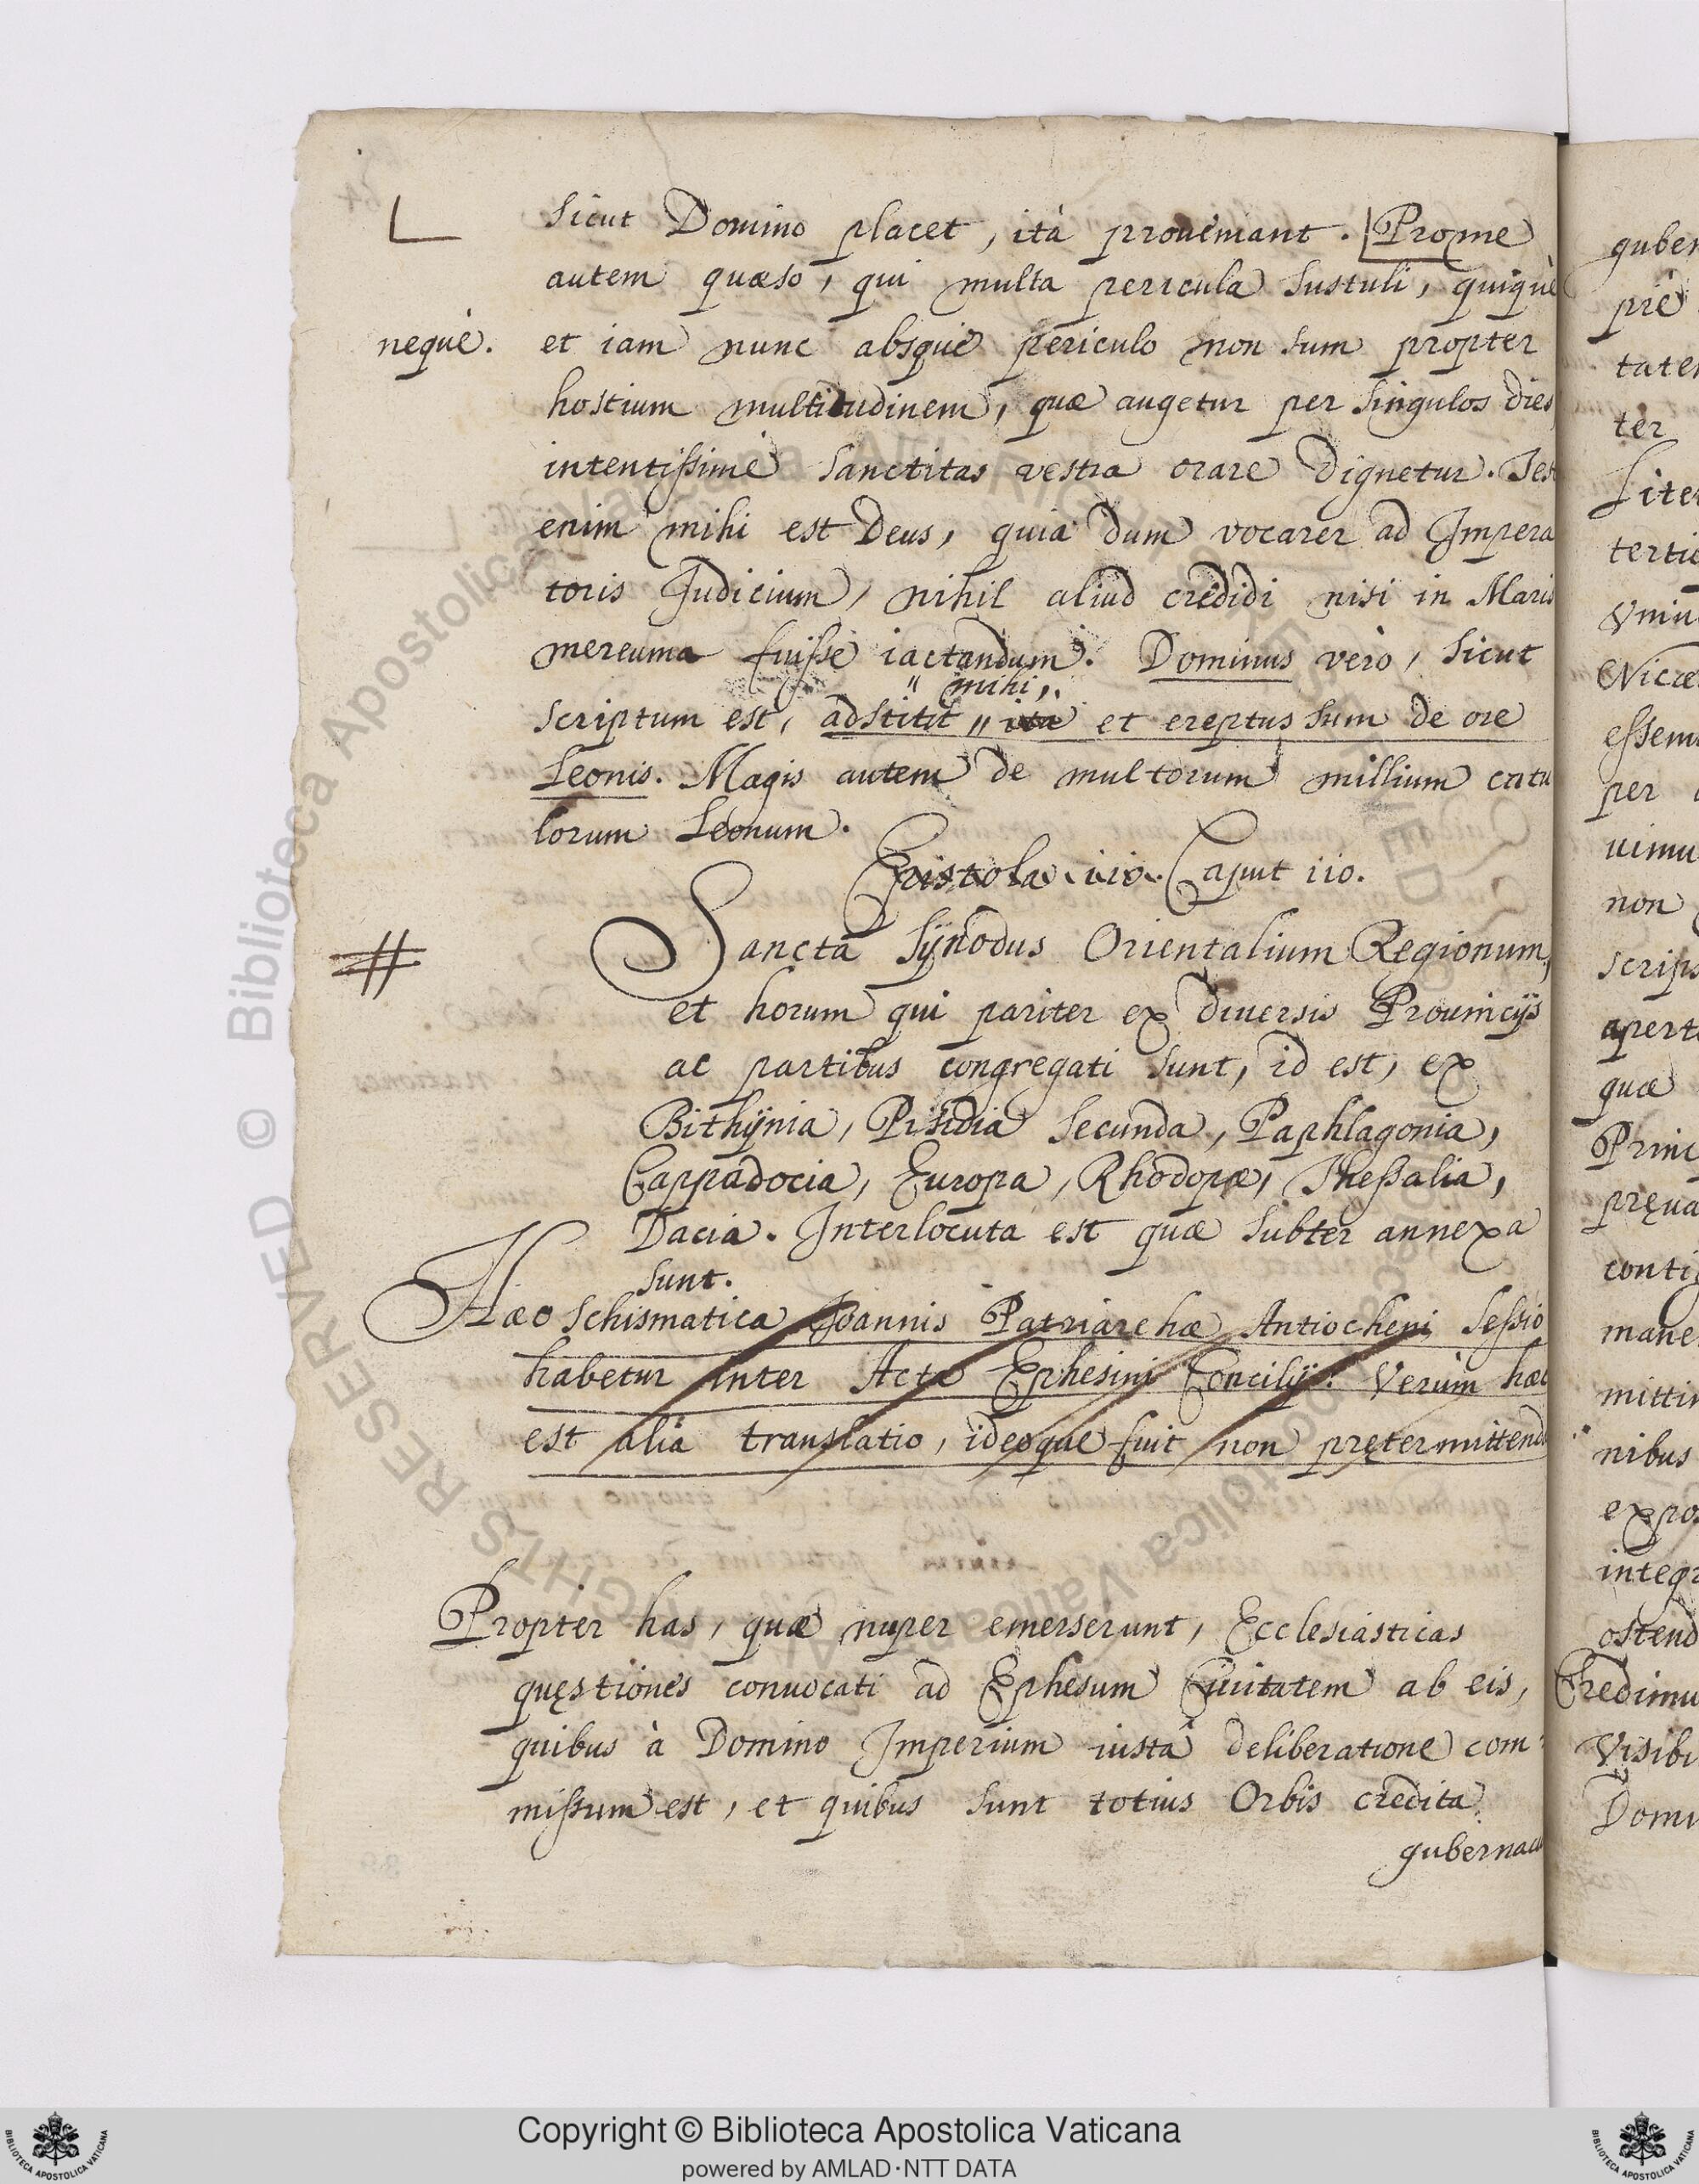 Sicut Domino placet, ità proueniant. Prome
autem quæso, qui multa pericula sustuli, quiquè
nequè. et iam nunc absquè periculo non sum propter
hostium multitudinem, quæ augetur per singulos dies
intentissimè sanctitas vestra orare dignetur. Tes
enim mihi est Deus, quia dum vocarer ad Impera
toris Judicium, nihil aliud credidi nisi in Maris
mereuma fuisse iactandum. Dominus verò, sicut
" mihi,.
scriptum est, adstitit " ita et ereptus sum de ore
Leonis. Magis autem de multorum millium catu
lorum Leonum.
Epistola .110. Caput 110.
# Sancta Sÿnodus Orientalium Regionum,
et horum qui pariter ex diuersis Prouincijs
ac partibus congregati sunt, id est, ex
Bithÿnia, Pisidia secunda, Paphlagonia,
Cappadocia, Europa, Rhodopæ, Thessalia,
Dacia. Interlocuta est quæ subter annexa
sunt.
Hæc schismatica Joannis Patriarchæ Antiocheni Sessio
habetur inter Acta Ephesini Concilij. Verùm hæc
est alia translatio, ideoque fuit non prętermittend
Propter has, quæ nuper emerserunt, Ecclesiasticas
quęstiones conuocati ad Ephesum Ciuitatem ab eis,
quibus à Domino Imperium iusta deliberatione com
missum est, et quibus sunt totius Orbis credita
gubernacu
guber
prè
tate
ter
Liter
tertio
Vniu
Nicæ
essem
per
uimu
non
scrips
aperte
quæ
Princ
pręua
contig
mane
mittim
nibus
expos
integr
ostend
Credimu
Visibi
Domi
© Biblioteca Apostolica Vaticana
Copyright © Biblioteca Apostolica Vaticana
powered by AMLAD·NTT DATA
BIBLIOTECA APOSTOLICA VATICANA
BIBLIOTECA APOSTOLICA VATICANA